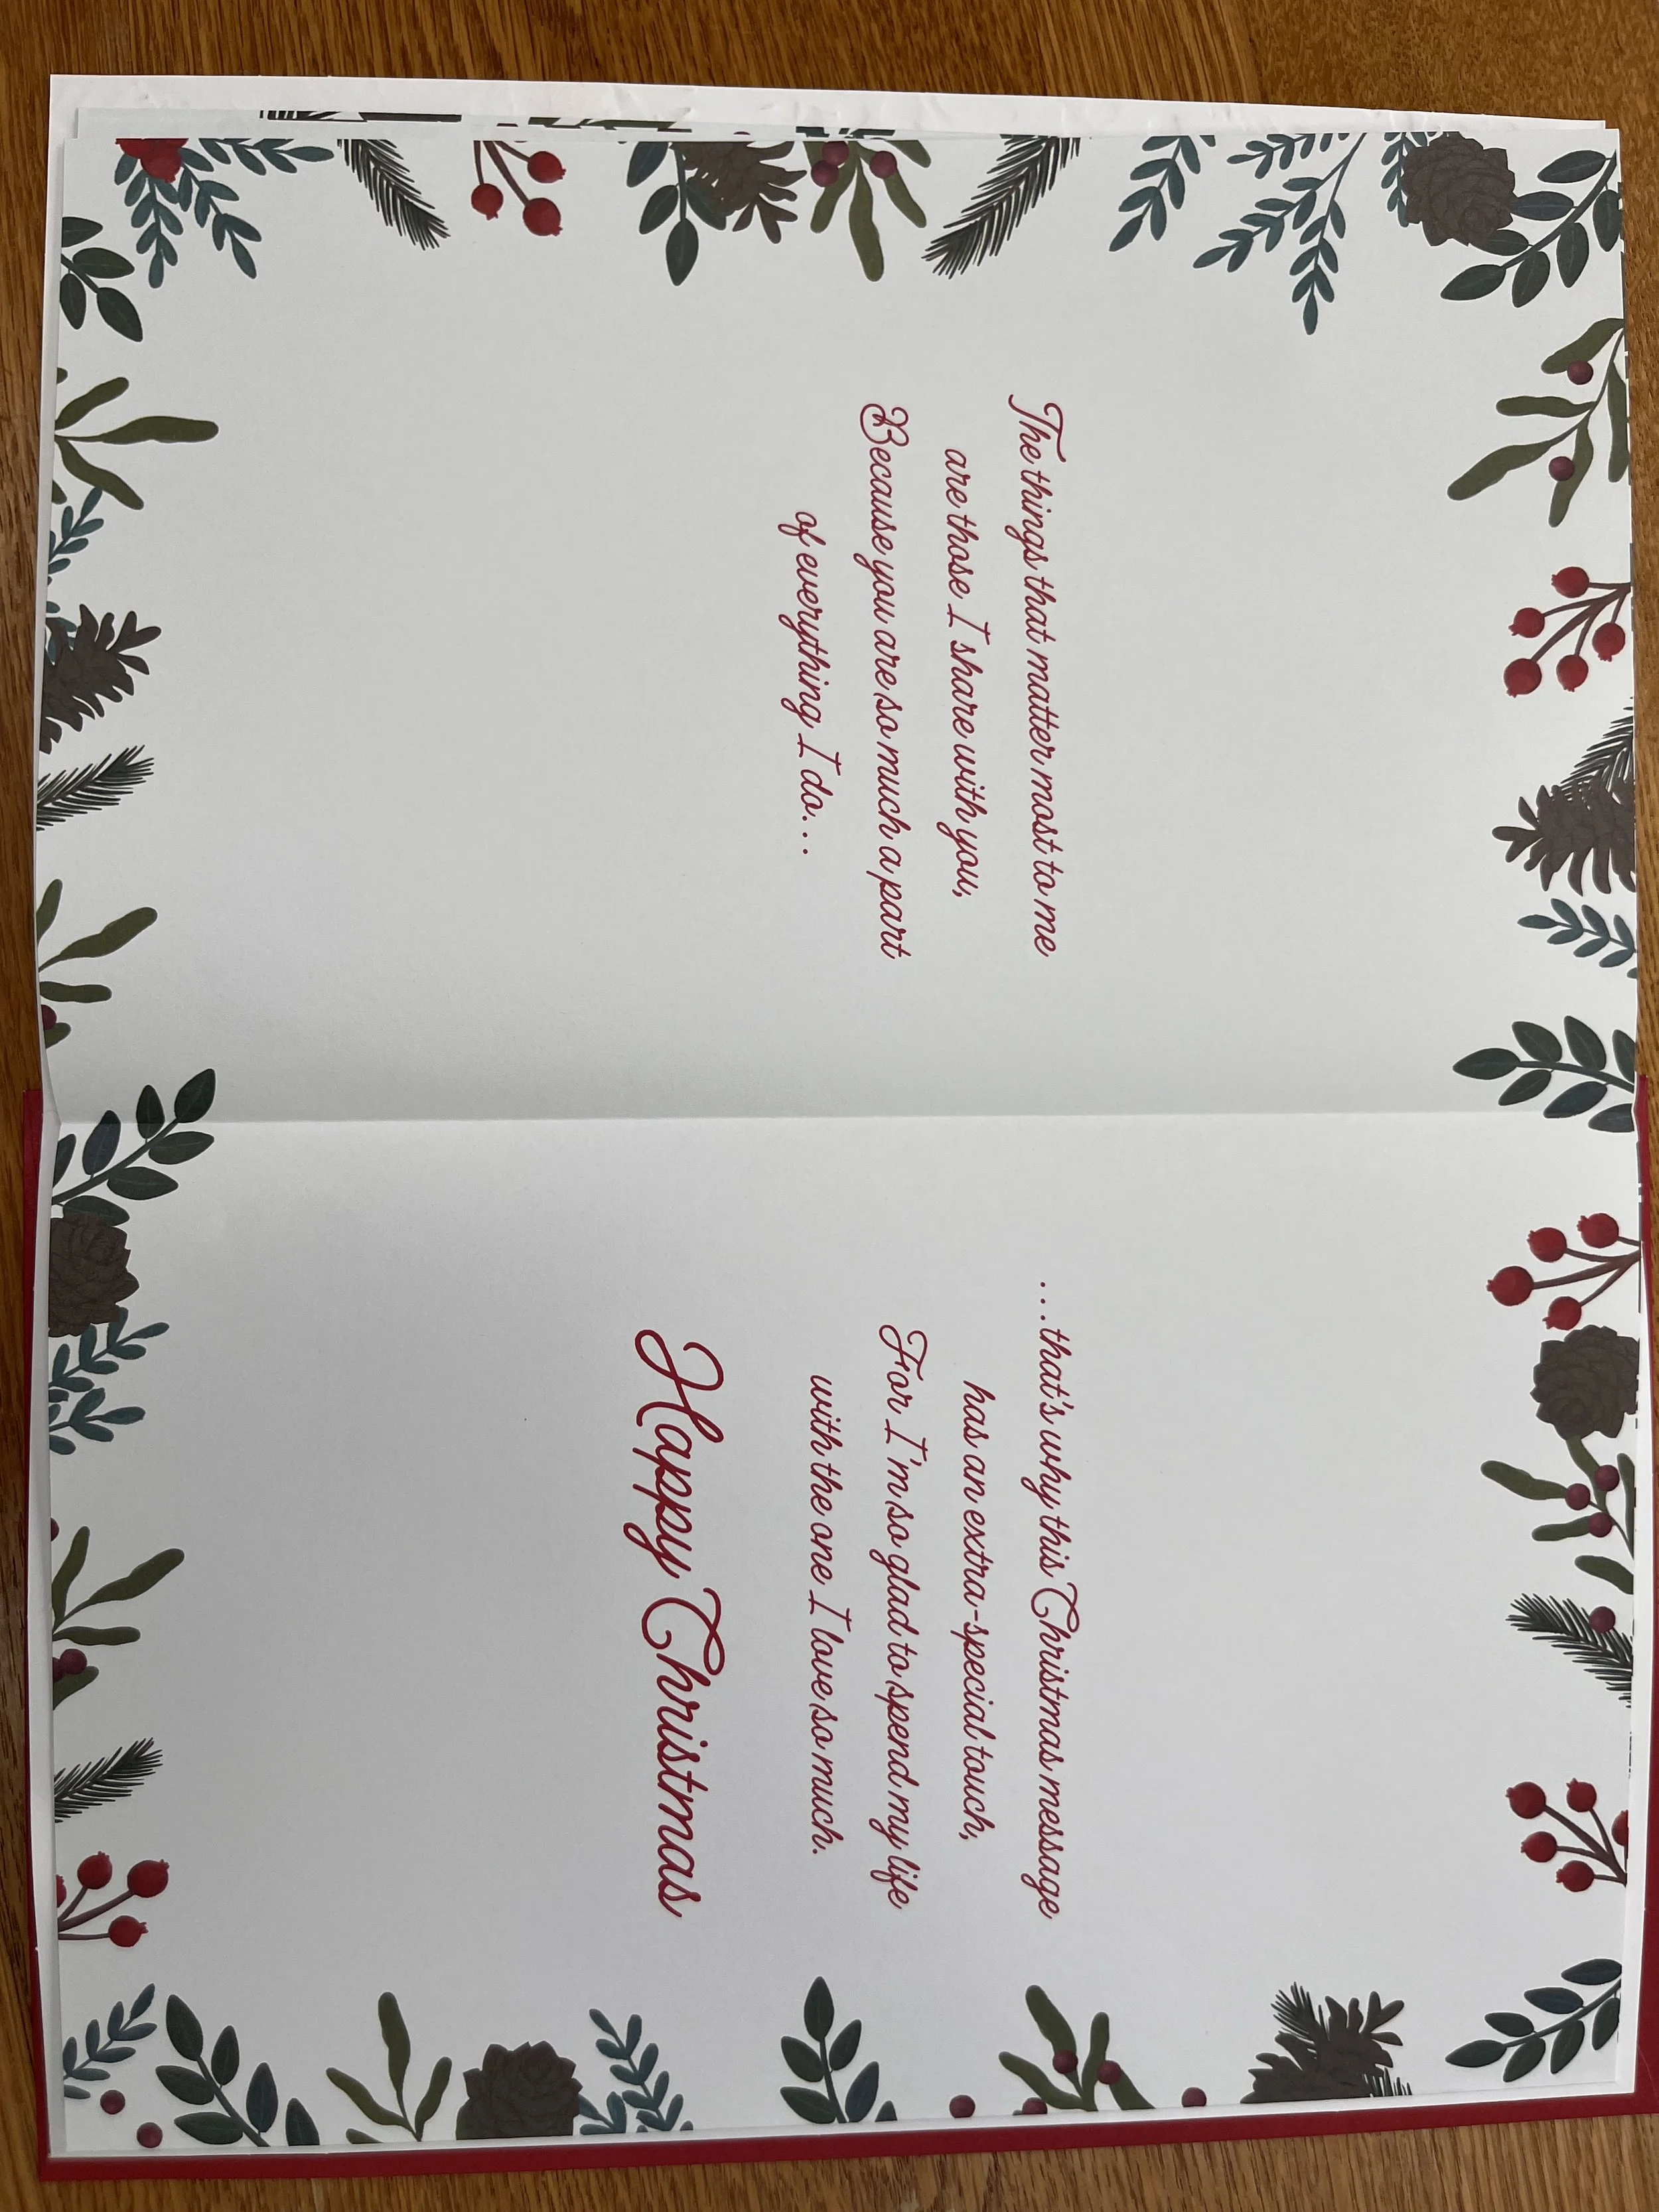 The things that matter most to me
are those I share with you,
Because you are so much a part
of everything I do...
...that's why this Christmas message
has an extra-special touch,
For I'm so glad to spend my life
with the one I love so much.
Happy Christmas